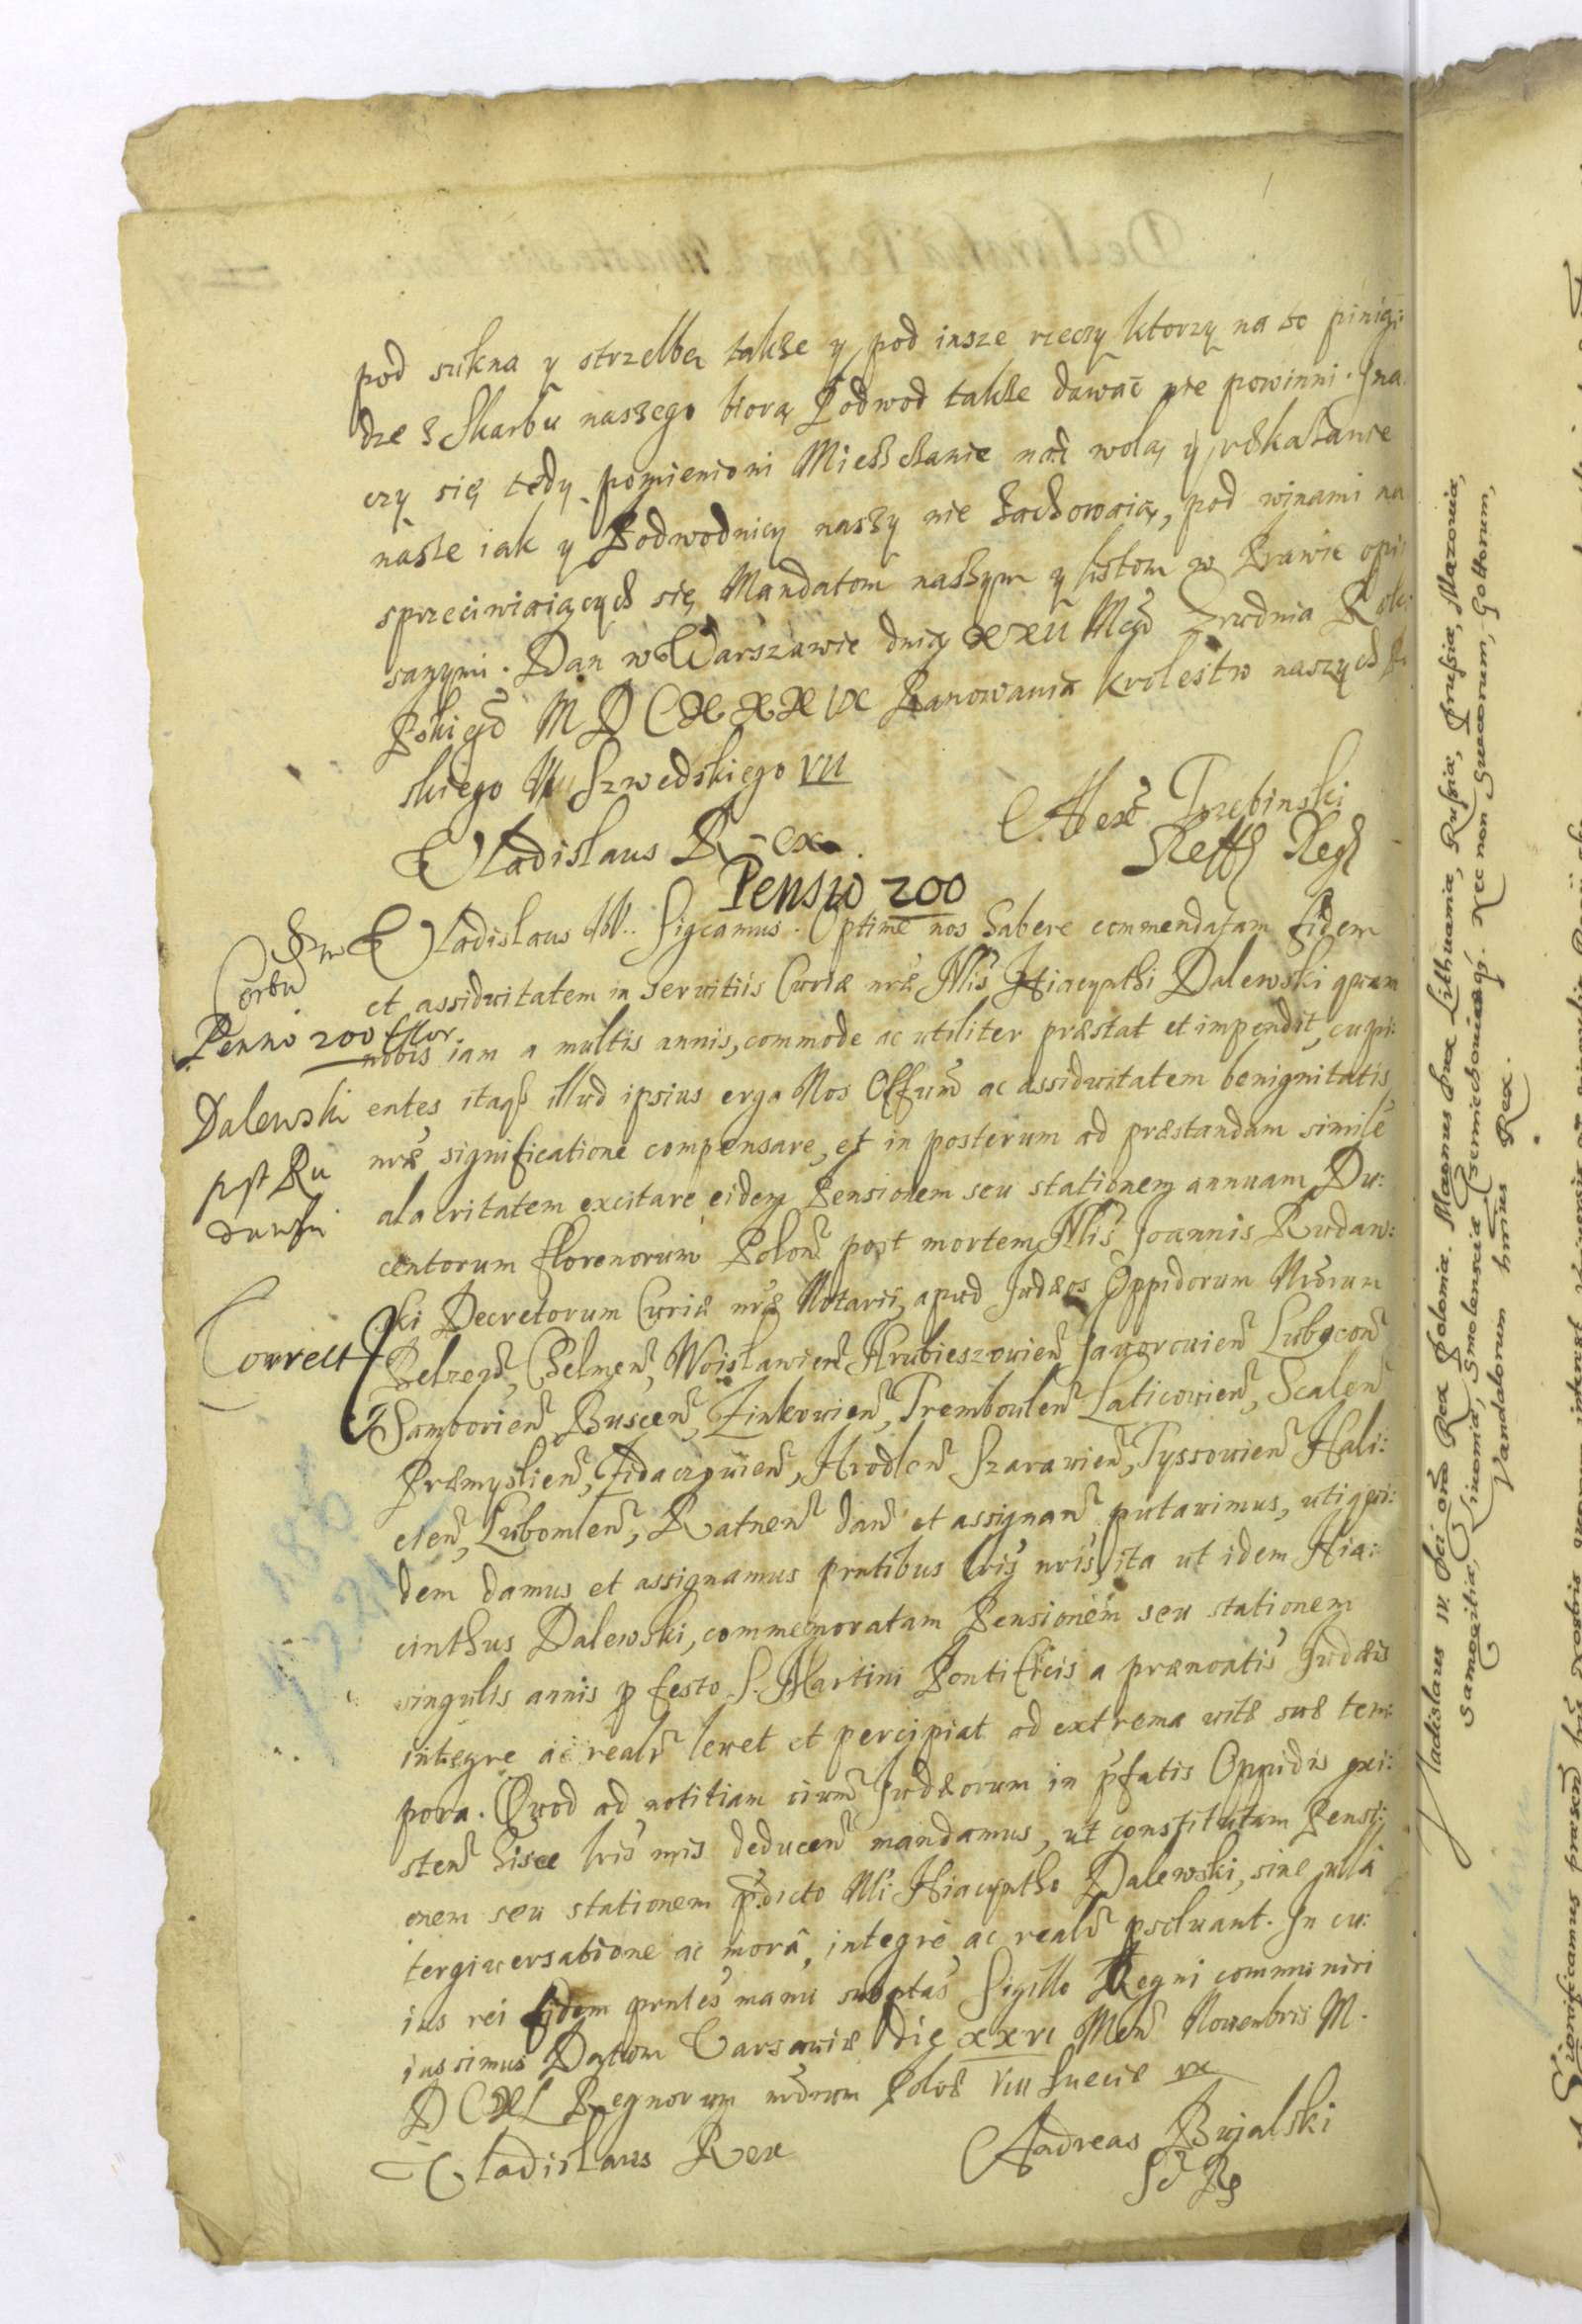 pod sukna y strzelbę takze y pod insze rzeczy ktorzy na to pinią:
dze z Skarbu naszego biorą Podwod takze dawać nie powinni. Ina
czy się tedy pomienioni Mieszczanie nad wolą y rozkazanie
nasze iak y Podwodnicy naszy nie zachowaią, pod winami na
sprzeciwiaiących się Mandatom naszym y listom w Prawie opi
sanymi. Dan w Warszawie dnia XXII Mcā Grudnia Roku
Pskiego MDCXXXIX Panowania krolestw naszych
skiego Szwedskiego VII
Vladislaus Rex
Trzebinski
Pensio 200
Vladislaus IV. Sigcamus. Optime nos habere commendatam fidem
et assiduitatem in servitiis Curiæ nræ Nlis Hiacynthi Dalewski quam
nobis iam a multis annis, commode ac utiliter præstat et impendit, cupi:
entes itaq illud ipsius erga Nos Offum ac assiduitatem benignitatis
nræ significatione compensare, et in posterum ad præstandam simile
alacritatem excitare eidem Pensionem seu stationem annuam Du:
centorum florenorum Polon post mortem Nlis Joannis Rudaw:
ski Decretorum Curiæ nræ Notarii, apud Judæos Oppidorum Nrorum
Belzen, Chelmen, Woislavien Hrubieszovien Javorovien Lubacon
Samborien Buscen, Zinkovien, Tremboulen Laticovien, Scalen
Præmyslien, Zidaczovien, Hrodlen Szaravien, Tyssovien Hali:
cien, Lubomlen, Ratnen dan et assignan putavimus, uti qui:
dem damus et assignamus pntibus lris nris, ita ut idem Hia:
cinthus Dalewski, commemoratam Pensionem seu stationem
singulis annis p festo S. Martini Pontificis a prænoatis Judæis
integre ac realr levet et percipiat ad extrema vitæ suæ tem:
pora. Quod ad notitiam oium Judæorum in pfatis Oppidis exi:
sten hisce lris nris deducen mandamus, ut constitutam Pensi:
onem seu stationem pdicto Nli Hiacyntho Dalewski, sine ulla
tergiversatione ac morâ, integrè ac realr psolvant. In cu:
ius rei fidem pntes manu subptas Sigillo Regni communiri
iussimus Datum Varsaviæ die XXVI Men Novembris M.
DCXL Regnorum nrorum Polæ VIII Sueciæ IX
Vladislaus Rex
Andreas Bujalski
Penno 200 flor
Dalewski
pst Ru
dawski
Correct
Vladislaus IV. Dei grā Rex Poloniæ. Magnus Dux Lithuaniæ, Russiæ, Prussiæ, Mazoviæ,
Samogitiæ, Livoniæ, Smolensciæ Czerniechoviæq. Nec non Suecorum, Gottorum,
Vandalorum hrius Rex.